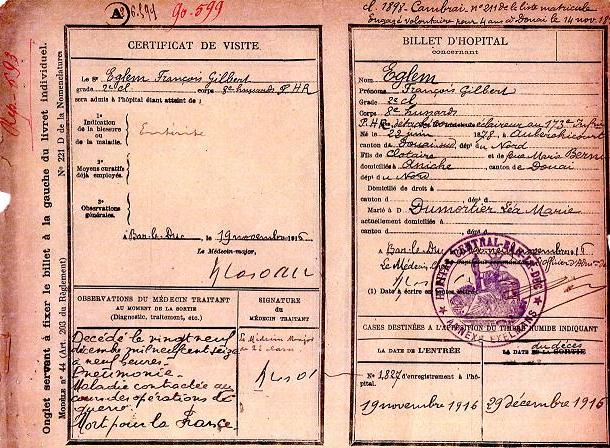 A
6.599
90-599
cl. 1898 - Cambrai, n° 211 de la liste matricule
Engagé volontaire pour 4 ans à Douai le 14 nov.
Onglet servant à fixer le billet à la gauche du livret individuel.
Modèle n° 44 (Art. 203 du Règlement)
N° 221 D de la Nomenclature
CERTIFICAT DE VISITE.
Le Sr Eglem François Gilbert
grade 2e cl Corps 8e hussards P.H.R
sera admis à l'hôpital étant atteint de ;
1°
Indication
de la blessure
ou
de la maladie.
Entérite
2°
Moyens curatifs
déjà employés.
3°
Observations
générales.
A Bar-le-Duc, le 19 novembre 1916
Le Médecin-major,
OBSERVATIONS DU MÉDECIN TRAITANT
AU MOMENT DE LA SORTIE
(Diagnostic, traitement, etc.)
SIGNATURE
DU
MÉDECIN TRAITANT
Décédé le vingt neuf
décembre mil neuf cent seize
à neuf heures.
Pneumonie.
Maladie contractée au
cours des opérations de
guerre.
Mort pour la France
Le Médecin Major
de 2e classe
BILLET D'HOPITAL
concernant
Nom Eglem
Prénoms François Gilbert
Grade 2e cl
Corps 8e hussards
P.H.R. détaché comme éclaireur au 173e Infrie
Né le 22 juin 1878, à Auberchicourt
canton de Douai sud dépt du Nord
Fils de Clotaire et de feue Marie
domiciliés à Aniche canton de Douai
dépt du Nord
Domicilié de droit à
canton d dépt d
Marié à D Dumortier Léa Marie
actuellement domiciliés à
canton d dépt d
A Bar-le-Duc, novembre 1916
Le Médecin
(1) Date à écrire en toutes lettres
HOPITAL CENTRAL-BAR-LE-DUC
ANNEXE EXELMANS
CASES DESTINÉES A L'APPOSITION DU TIMBRE HUMIDE INDIQUANT
LA DATE DE L'ENTRÉE
du décès
LA DATE DE LA SORTIE
N° 1,827 d'enregistrement à l'hô-
pital.
19 novembre 1916
29 décembre 1916